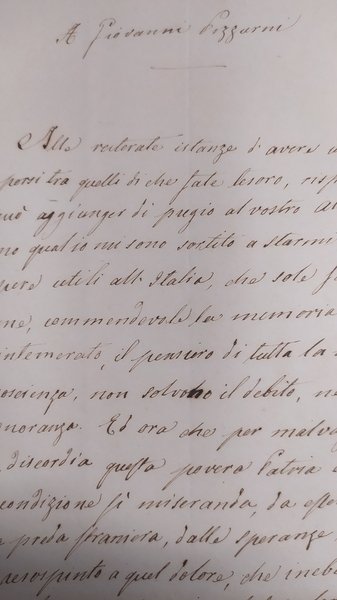 A Giovanni Pizzorni
Alle reiterate istanze d'avere
porsi tra quelli di che fate tesoro, risp
può aggiunger di pregio al vostro
no qual io mi sono sortito a starmi
pere utili all'Italia, che sole
ne, commendevole la memoria
intemerato, il pensiero di tutta la
coscienza, non solvono il debito, ne
noranza. Ed ora che per malva
discordia questa povera Patria
condizione sì miseranda, da esse
preda straniera, dalle speranze
resospinto a quel dolore, che ineb